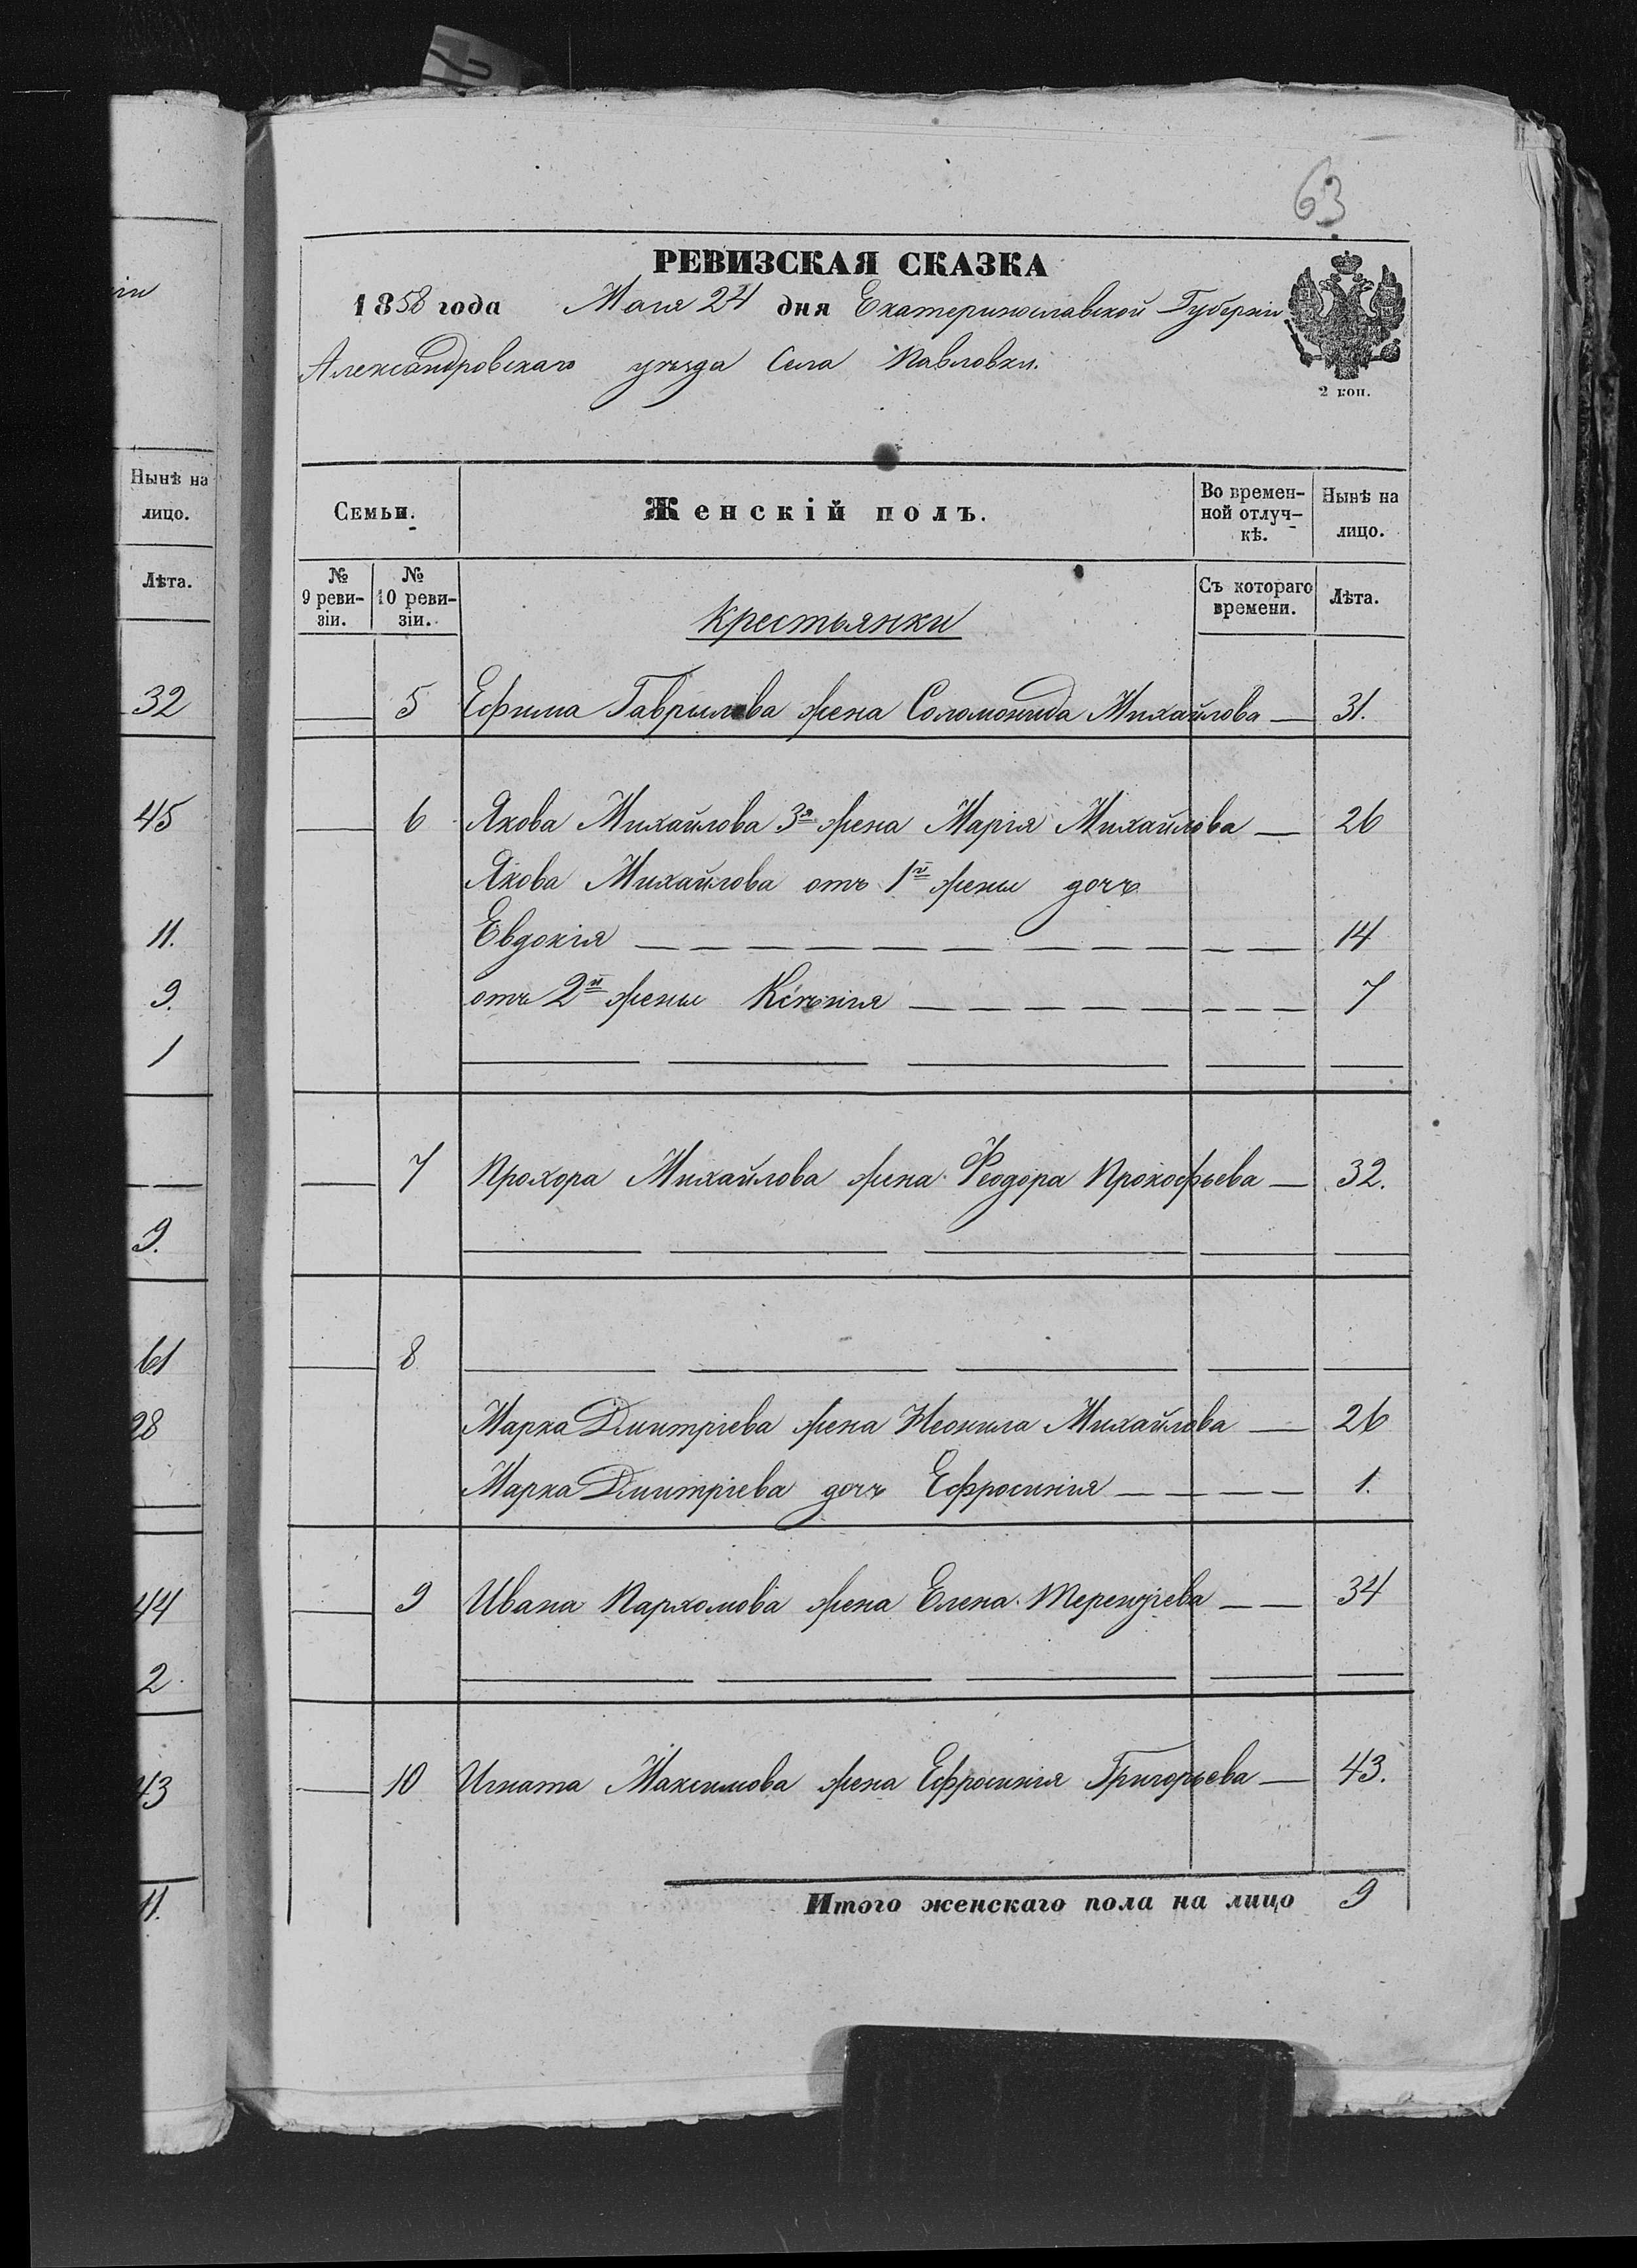 63
РЕВИЗСКАЯ СКАЗКА
1858 года Маия 24 дня Екатеринославской Губерніи
Александровскаго уѣзда Села Павловки.
2 коп.
Нынѣ на
лицо.
Лѣта.
32
45
11.
9.
1
9.
61
28
44
2
43
11.
Семьи.
Женскій полъ.
Во времен-
ной отлуч-
кѣ.
Нынѣ на
лицо.
№
9 реви-
зіи.
№
10 реви-
зіи.
Съ котораго
времени.
Лѣта.
Крестьянки
5 Ефима Гаврилова жена Соломонида Михайлова — 31.
6 Якова Михайлова 3я жена Марія Михайлова — 26
Якова Михайлова отъ 1й жены дочь
Евдокія 14
отъ 2й жены Ксѣнія 7
7 Прохора Михайлова жена Феодора Прокофьева — 32.
8
Марка Дмитріева жена Неонила Михайлова — 26
Марка Дмитріева дочь Ефросинія 1.
9 Ивана Пархомова жена Елена Терентіева 34
10 Игната Максимова жена Ефросинія Григорьева — 43.
Итого женскаго пола на лицо 9